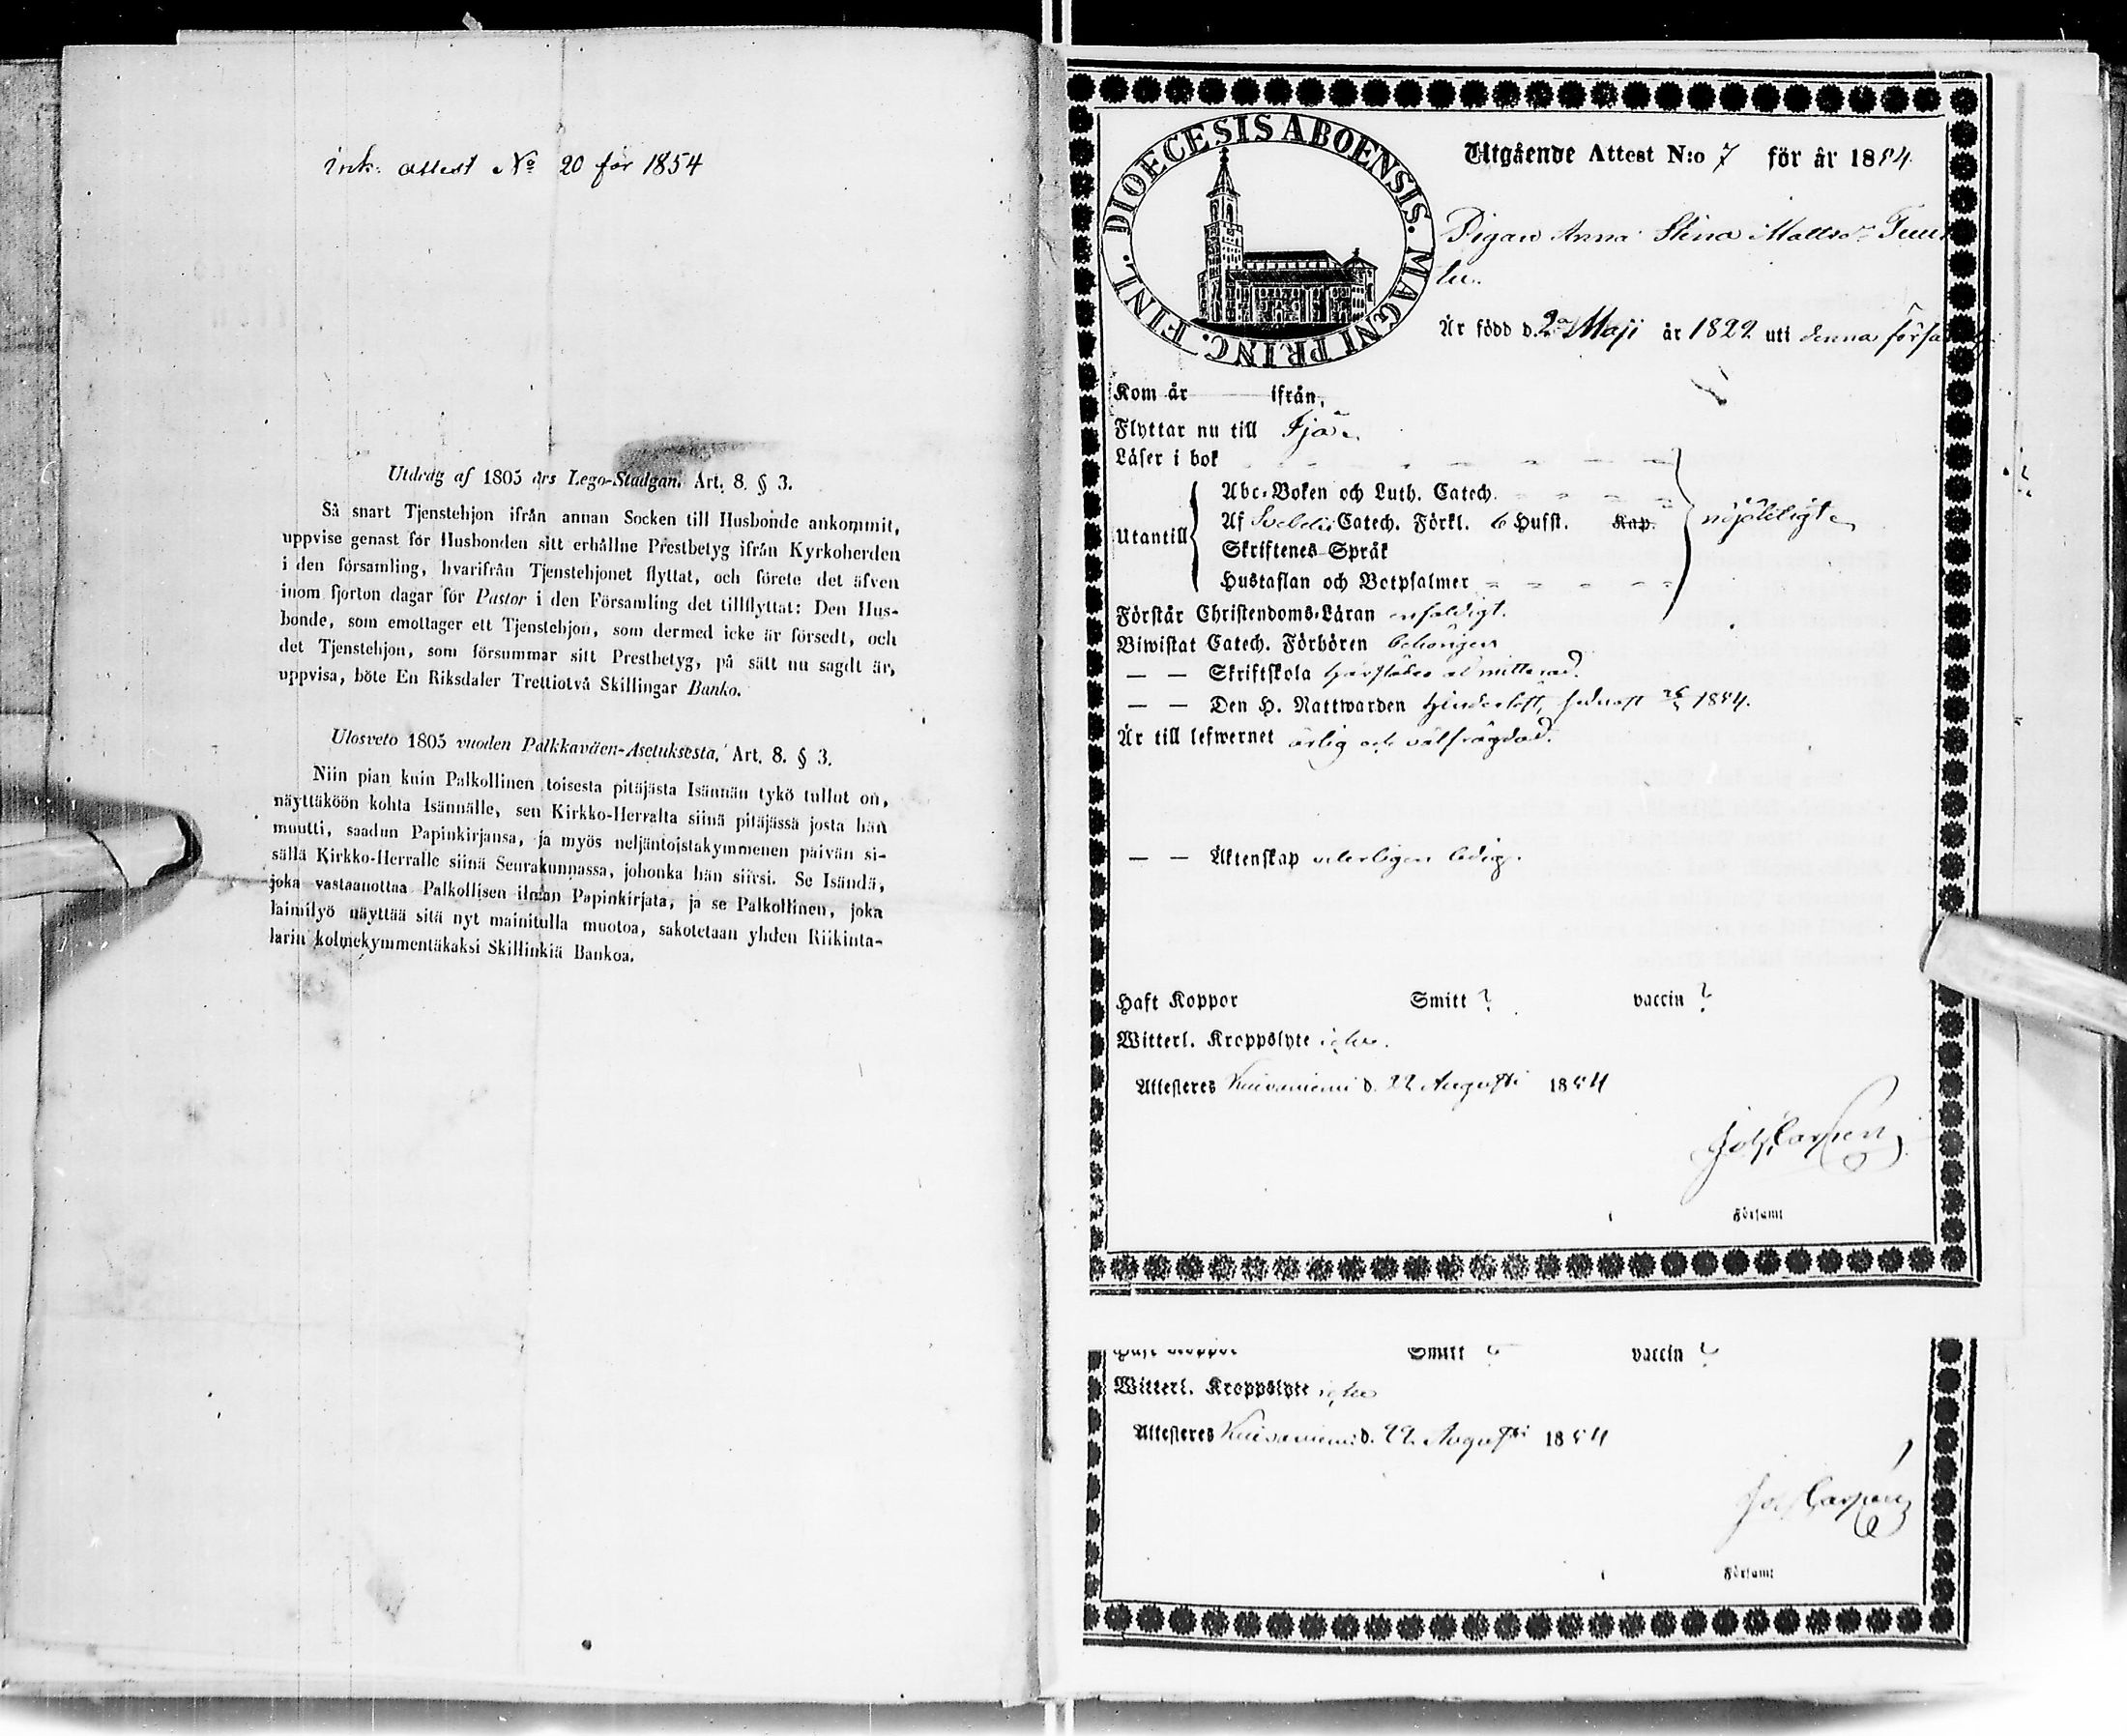 ink. attest No 20 för 1854
Utdrag af 1805 års Lego-Stadgan. Art. 8. § 3.
Så snart Tjenstehjon ifrån annan Socken till Husbonde ankommit,
uppvise genast för Husbonden sitt erhållne Prestbetyg ifrån Kyrkoherden
i den församling, hvarifrån Tjenstehjonet flyttat, och förete det äfven
inom fjorton dagar för Pastor i den Församling det tillflyttat: Den Hus-
bonde, som emottager ett Tjenstehjon, som dermed icke är försedt, och
det Tjenstehjon, som försummar sitt Prestbetyg, på sätt nu sagdt är,
uppvisa, böte En Riksdaler Trettiotvå Skillingar Banko.
Ulosveto 1805 vuoden Palkkaväen-Asetuksesta, Art. 8. § 3.
Niin pian kuin Palkollinen toisesta pitäjästa Isännän tykö tullut on,
näyttäköön kohta Isännälle, sen Kirkko-Herralta siinä pitäjässä josta hän
muutti, saadun Papinkirjansa, ja myös neljäntoistakymmenen päivän si-
sällä Kirkko-Herralle siinä Seurakunnassa, johonka hän siirsi. Se Isändä,
joka vastaanottaa Palkollisen ilman Papinkirjata, ja se Palkollinen, joka
laimilyö näyttää sitä nyt mainitulla muotoa, sakotetaan yhden Riikinta-
larin kolmekymmentäkaksi Skillinkiä Bankoa.
DIOECESIS ABOENSIS. MAGNI PRINC. FINL.
Utgående Attest N:o 7 för år 1854.
Pigan Anna Stina Mattsdr
Är född d. 2 Maji år 1822 uti denna försa
Kom år ifrån,
Flyttar nu till Ijo
Läser i bok
Abc-Boken och Luth. Catech.
Utantill Af Svebelii Catech. Förkl. 6 Hufst. Kap. nöjdeligt
Skriftenes Språk
Hustaflan och Botpsalmer
Förstår Christendoms-Läran enfaldigt.
Biwistat Catech. Förhören behörigen
— — Skriftskola härstädes admitterad.
— — Den H. Nattwarden hinderlöst, sednast 1854.
Är till lefwernet ärlig och välfrägdad.
— — Äktenskap veterligen ledig.
Haft Koppor Smitt ? vaccin ?
Witterl. Kroppslyte icke.
Attesteres Kuivaniemi d. 22 Augusti 1854
Joh. Carpen
Förfamt
Haft Koppor Smitt ? vaccin ?
Witterl. Kroppslyte icke
Attesteres Kuivaniemi d. 22. Augusti 1854
Joh Carpen
Förfamt